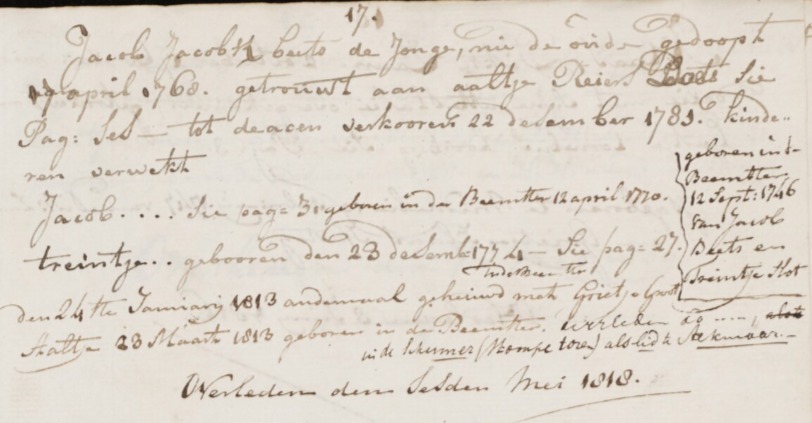 17.
Jacob Jacobsz beets de Jonge, nu de oude gedoopt
17 april 1768. getrouwt aan aaltje Reiers Boets Sie
Pag: Ses — tot deacen verkooren 22 desember 1781. kinde-
ren verwekt
Jacob .... Sie pag= 31 geboren in de Beemster 12 april 1770.
treintje .. gebooren den 23 desemb 1774 — Sie pag= 27.
In de Beemster
den 24ste Januarij 1813 andemaal gehuwd meth Grietje Groot
Aaltje 23 Maart 1813 geboren in de Beemster. overleden
in de Schermer (Stompe toren) als lid te Alkmaar.
Overleden den Sesden Mei 1818.
geboren in d-
Beemster
12 Sept: 1746
van Jacob
Beets en
Treintje Slot